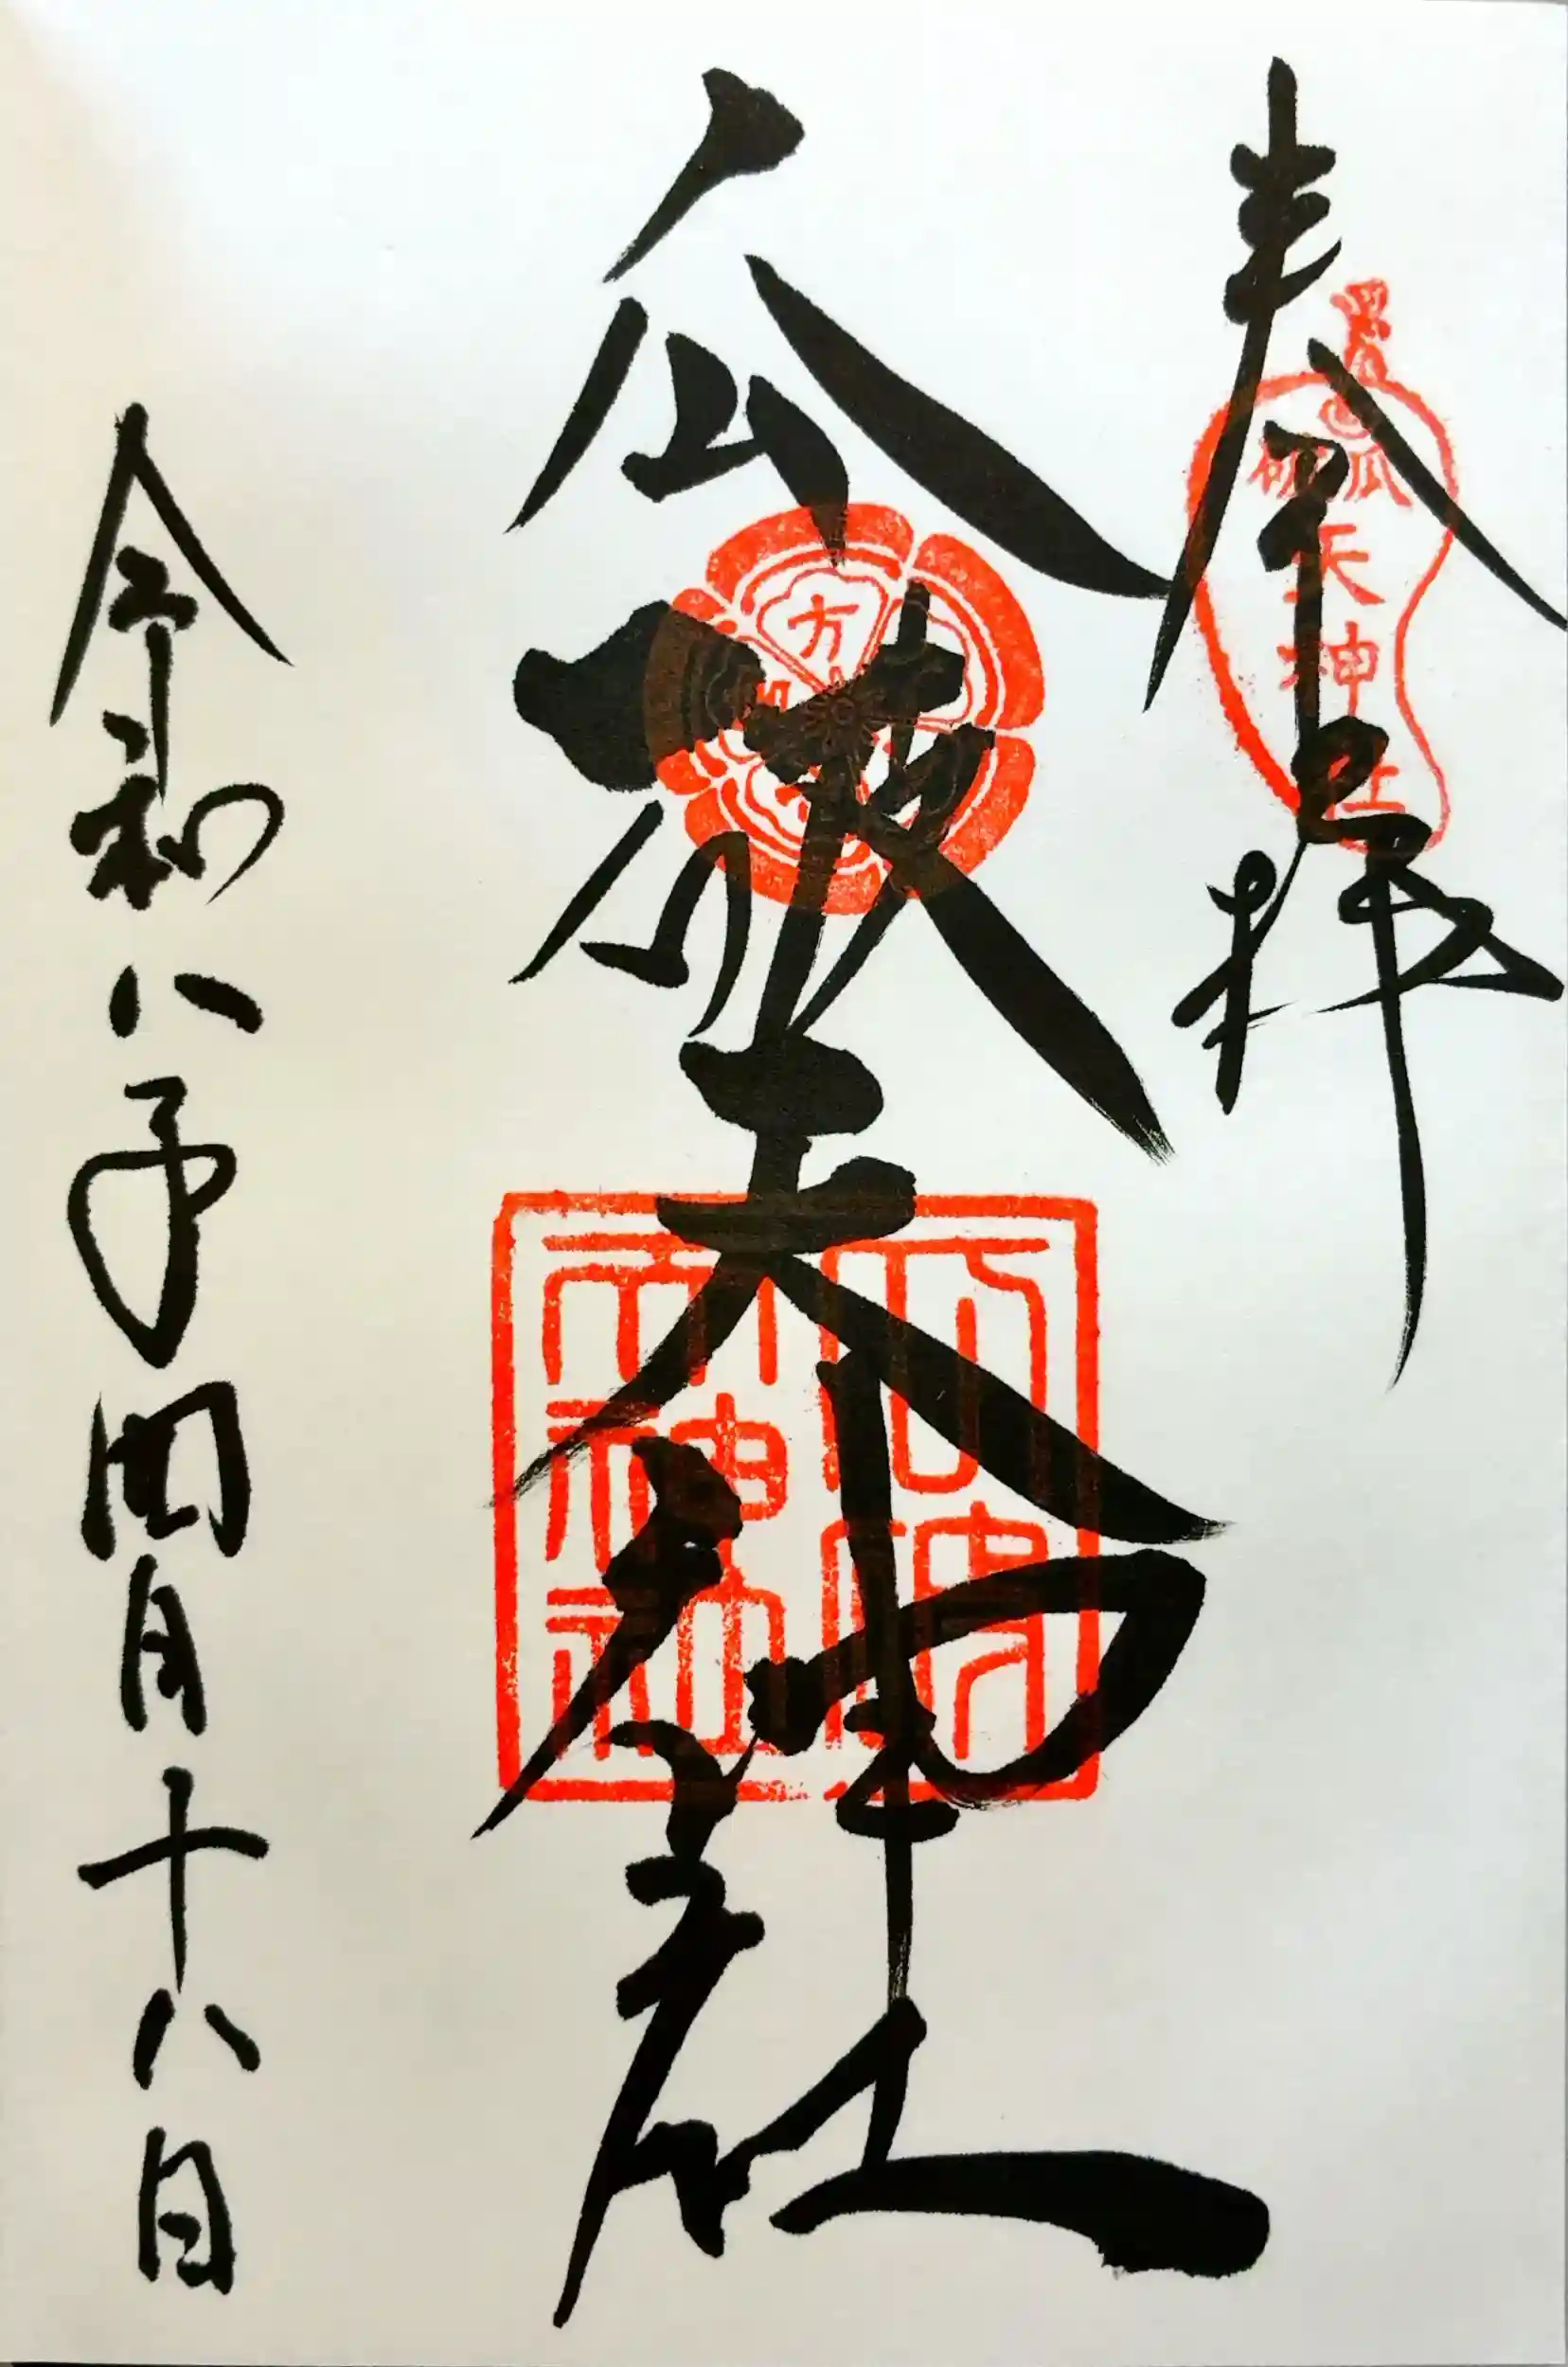 奉拝
瓜破天神社
瓜破
天
神
社
方
瓜破天神社
令和八年四月十八日